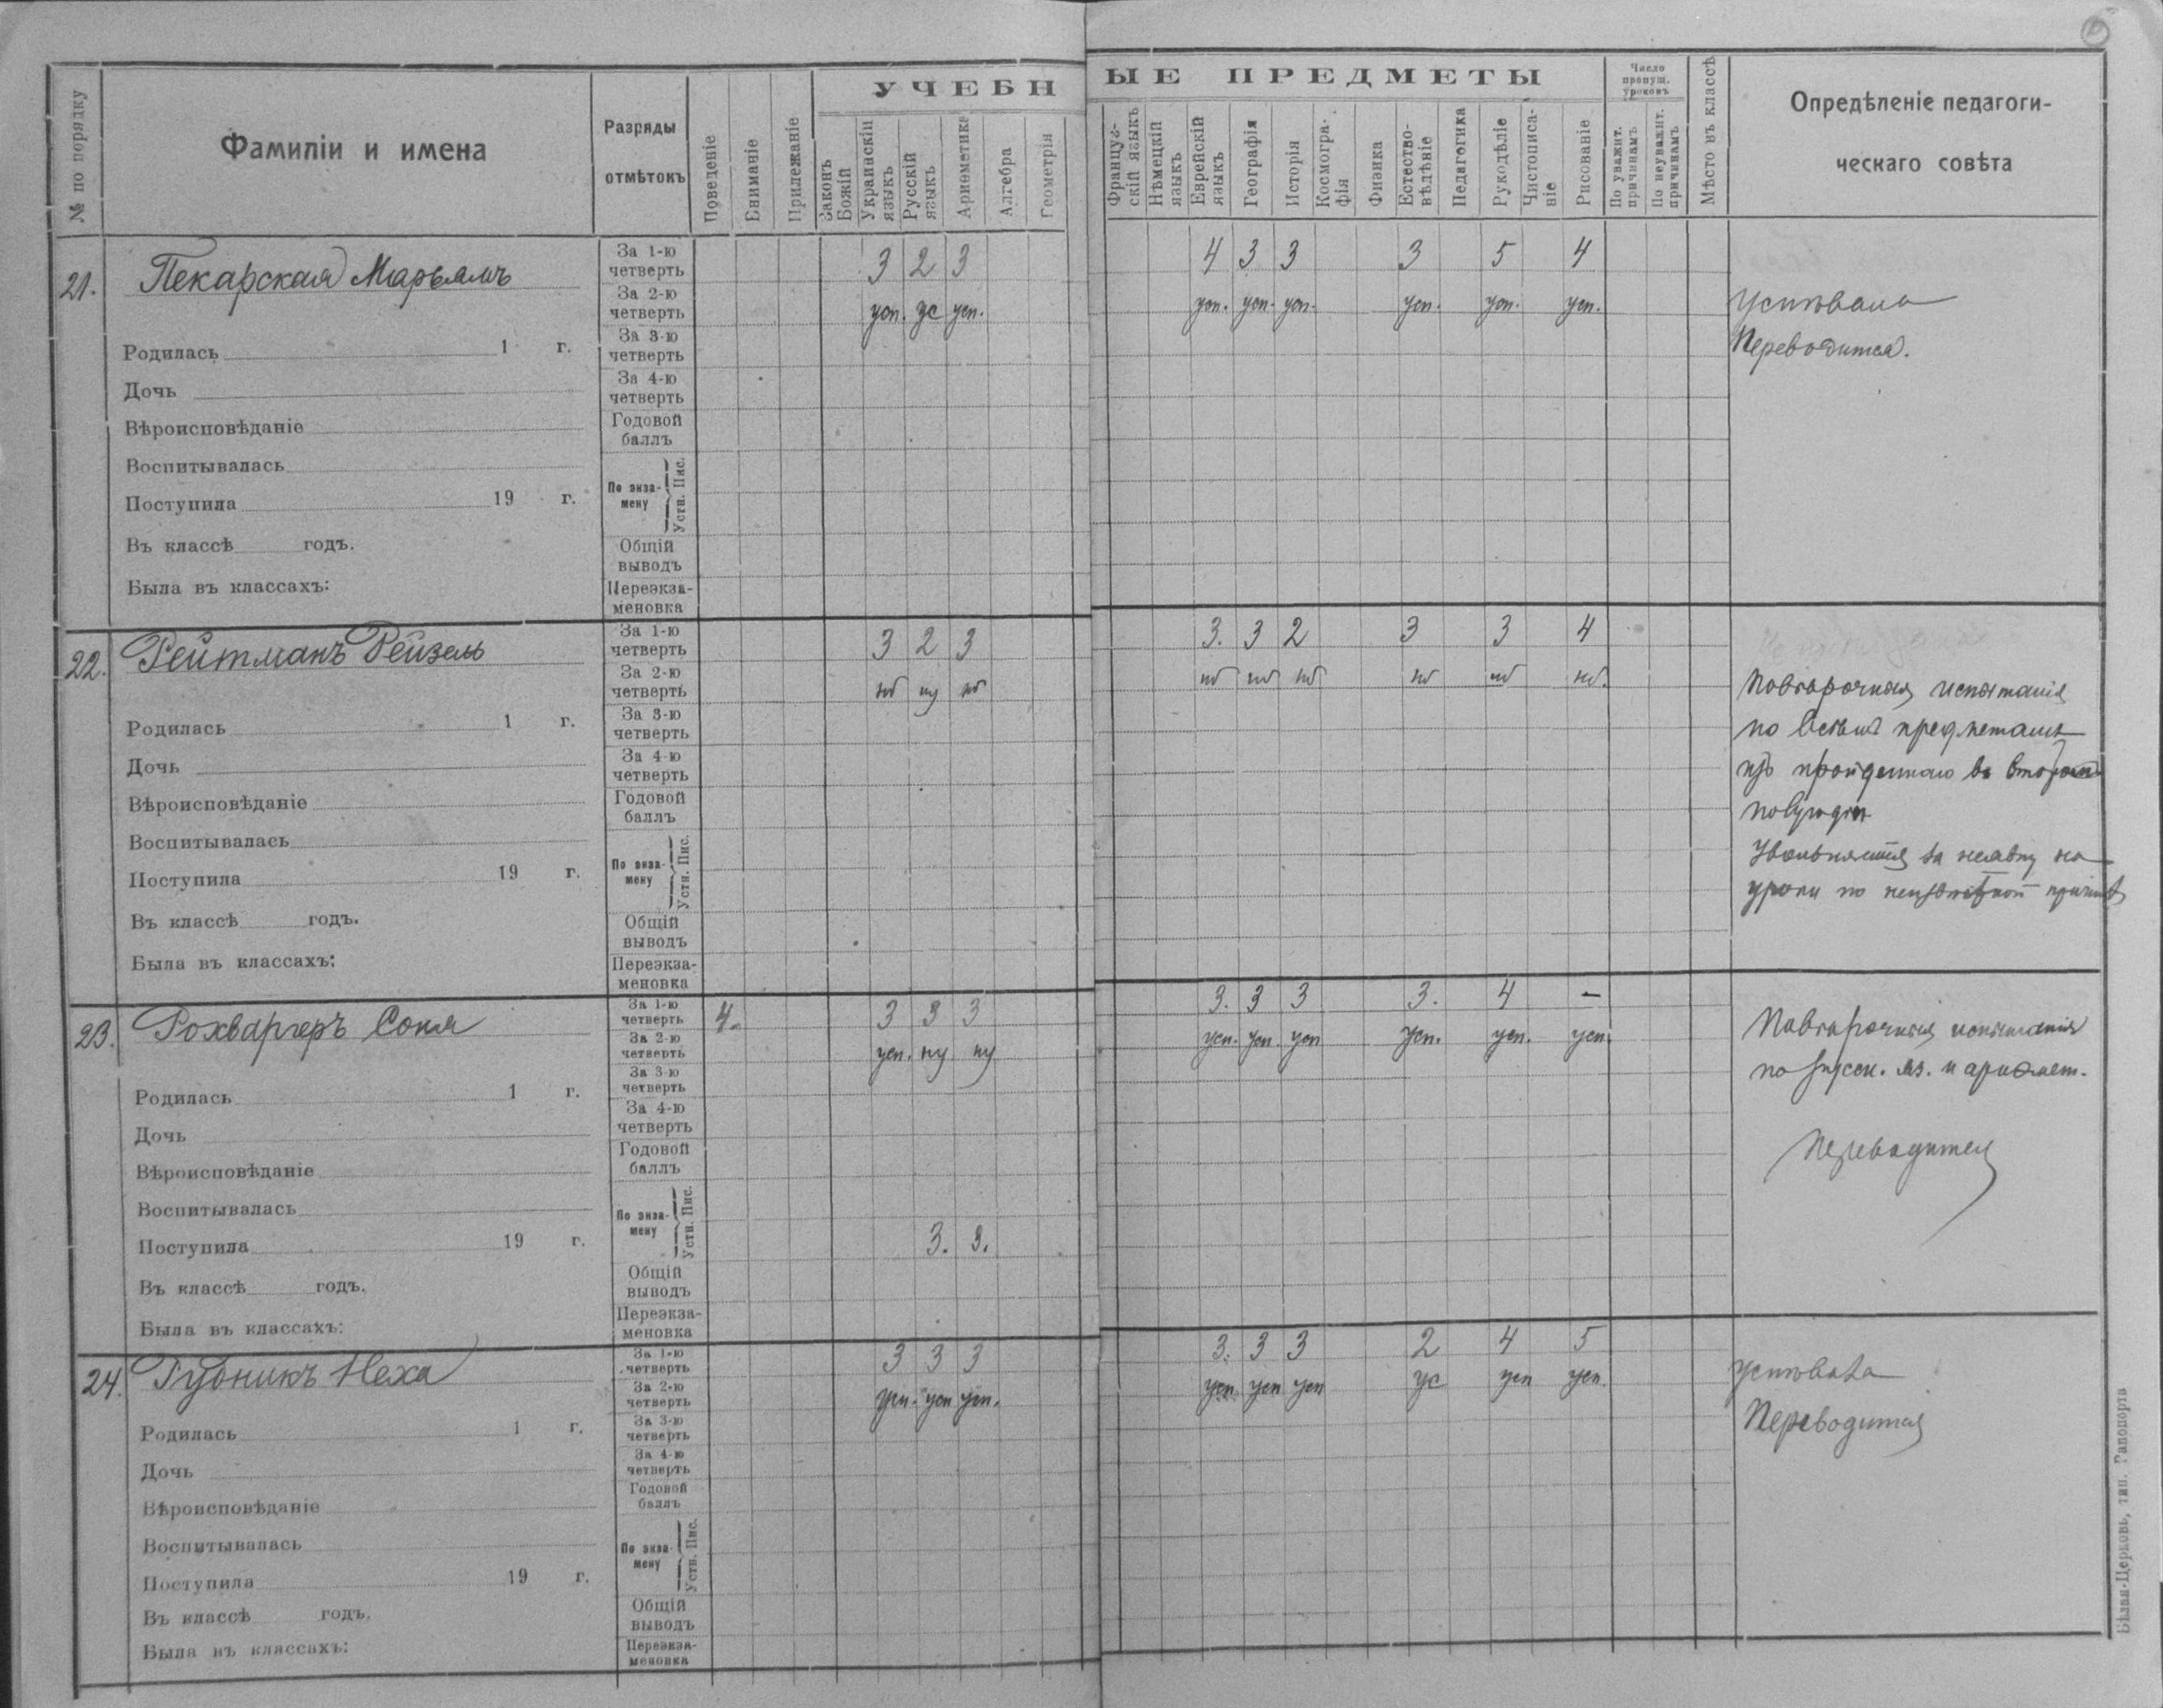 УЧЕБНЫЕ ПРЕДМЕТЫ
№ по порядку
Фамиліи и имена
Разряды отмѣтокъ
Поведеніе
Вниманіе
Прилежаніе
Законъ Божій
Украинскій языкъ
Русскій языкъ
Ариѳметика
Алгебра
Геометрія
Французскій языкъ
Нѣмецкій языкъ
Еврейскій языкъ
Географія
Исторія
Космографія
Физика
Естествовѣдѣніе
Педагогика
Рукодѣліе
Чистописаніе
Рисованіе
Число пропущ. уроковъ
По уважит. причинамъ
По неуважит. причинамъ
Мѣсто въ классѣ
Опредѣленіе педагогическаго совѣта
21. Пекарская Марьямъ
Родилась 1 г.
Дочь
Вѣроисповѣданіе
Воспитывалась
Поступила 19 г.
Въ классѣ годъ.
Была въ классахъ:
За 1-ю четверть 3 2 3 4 3 3 3 5 4
За 2-ю четверть усп. ус усп. усп. усп. усп. усп. усп. усп.
За 3-ю четверть
За 4-ю четверть
Годовой баллъ
По экзамену Устн. Пис.
Общій выводъ
Переэкзаменовка
Успѣвала
Переводится.
22. Рейтманъ Рейзель
Родилась 1 г.
Дочь
Вѣроисповѣданіе
Воспитывалась
Поступила 19 г.
Въ классѣ годъ.
Была въ классахъ:
За 1-ю четверть 3 2 3 3. 3 2 3 3 4
За 2-ю четверть нб ну нб нб нб нб нб нб нб.
За 3-ю четверть
За 4-ю четверть
Годовой баллъ
По экзамену Устн. Пис.
Общій выводъ
Переэкзаменовка
испытанія
по всѣмъ предметамъ
изъ пройденнаго во второмъ
полугодіи
Увольняется за неявку на
уроки по неизвѣстной причинѣ
23. Рохваргеръ Соня
Родилась 1 г.
Дочь
Вѣроисповѣданіе
Воспитывалась
Поступила 19 г.
Въ классѣ годъ.
Была въ классахъ:
За 1-ю четверть 4. 3 3 3 3. 3 3 3. 4 —
За 2-ю четверть усп. ну ну усп. усп. усп усп. усп. усп.
За 3-ю четверть
За 4-ю четверть
Годовой баллъ
По экзамену Устн. Пис. 3. 3.
Общій выводъ
Переэкзаменовка
испытанія
по русск. яз. и ариѳмет.
Переводится
24. Рубникъ Неха
Родилась 1 г.
Дочь
Вѣроисповѣданіе
Воспитывалась
Поступила 19 г.
Въ классѣ годъ.
Была въ классахъ:
За 1-ю четверть 3 3 3 3. 3 3 2 4 5
За 2-ю четверть усп. усп усп. усп усп усп ус усп усп.
За 3-ю четверть
За 4-ю четверть
Годовой баллъ
По экзамену Устн. Пис.
Общій выводъ
Переэкзаменовка
Успѣвала
Переводится
Бѣлая-Церковь, тип. Рапопорта